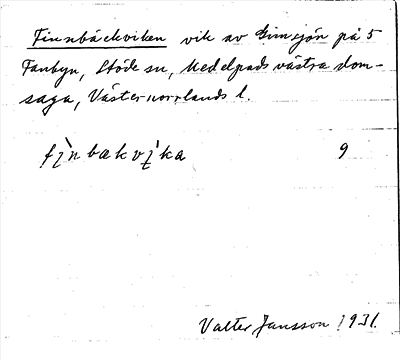 Finnbäckviken vik av Gimsjön på 5
Fanbyn, Stöde sn, Medelpads västra dom-
saga, Västernorrlands l.
fìnbækvi̗ka 9
Valter Jansson 1931.